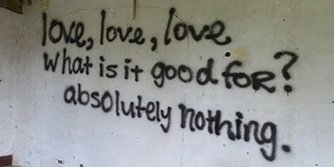 love, love, love
what is it good for?
absolutely nothing.